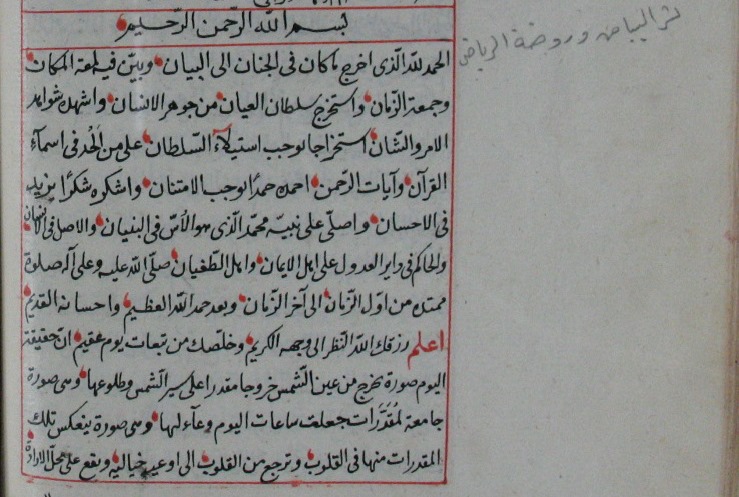 بسم الله الرّحمن الرّحيم
نثر البياض وروضة الرياض
الحمد لله الّذى اخرج ماكان فى الجنان الى البيان وبيّن فيه لمعة المكان
وجمعة الزّمان واستخرج سلطان العيان من جوهر الانسان واشهده شواهد
الامر والشّان استخراجا يوجب استيلآء السّلطان على من الحُد فى اسمآء
القرآن وآيات الرّحمن احمده حمدًا يوجب الامتنان واشكره شكرًا يزيد
فى الاحسان واصلّى على نبيّه محمّد الّذى هو الاُسّ فى البنيان والاصل فى الانسان
والحاكم فى داير العدول على اهل الايمان واهل الطّغيان صلّى الله عليه وعلى آله صلوة
ممتدة من اوّل الزّمان الى آخر الزّمان وبعد حمد الله العظيم واحسانه القديم
اعلم رزقك الله النّظر الى وجهه الكريم وخلّصك من تبعات يوم عقيم انّ حقيقة
اليوم صورة تخرج من عين الشّمس خروجا مقدرا على سير الشّمس وطلوعها وهى صورة
جامعة لمقدّرات جعلت ساعات اليوم وعآء لها وهى صورة ينعكس تلك
المقدرات منها فى القلوب وترجع من القلوب الى اوعية خياليه ويقع على محلّ الارادة